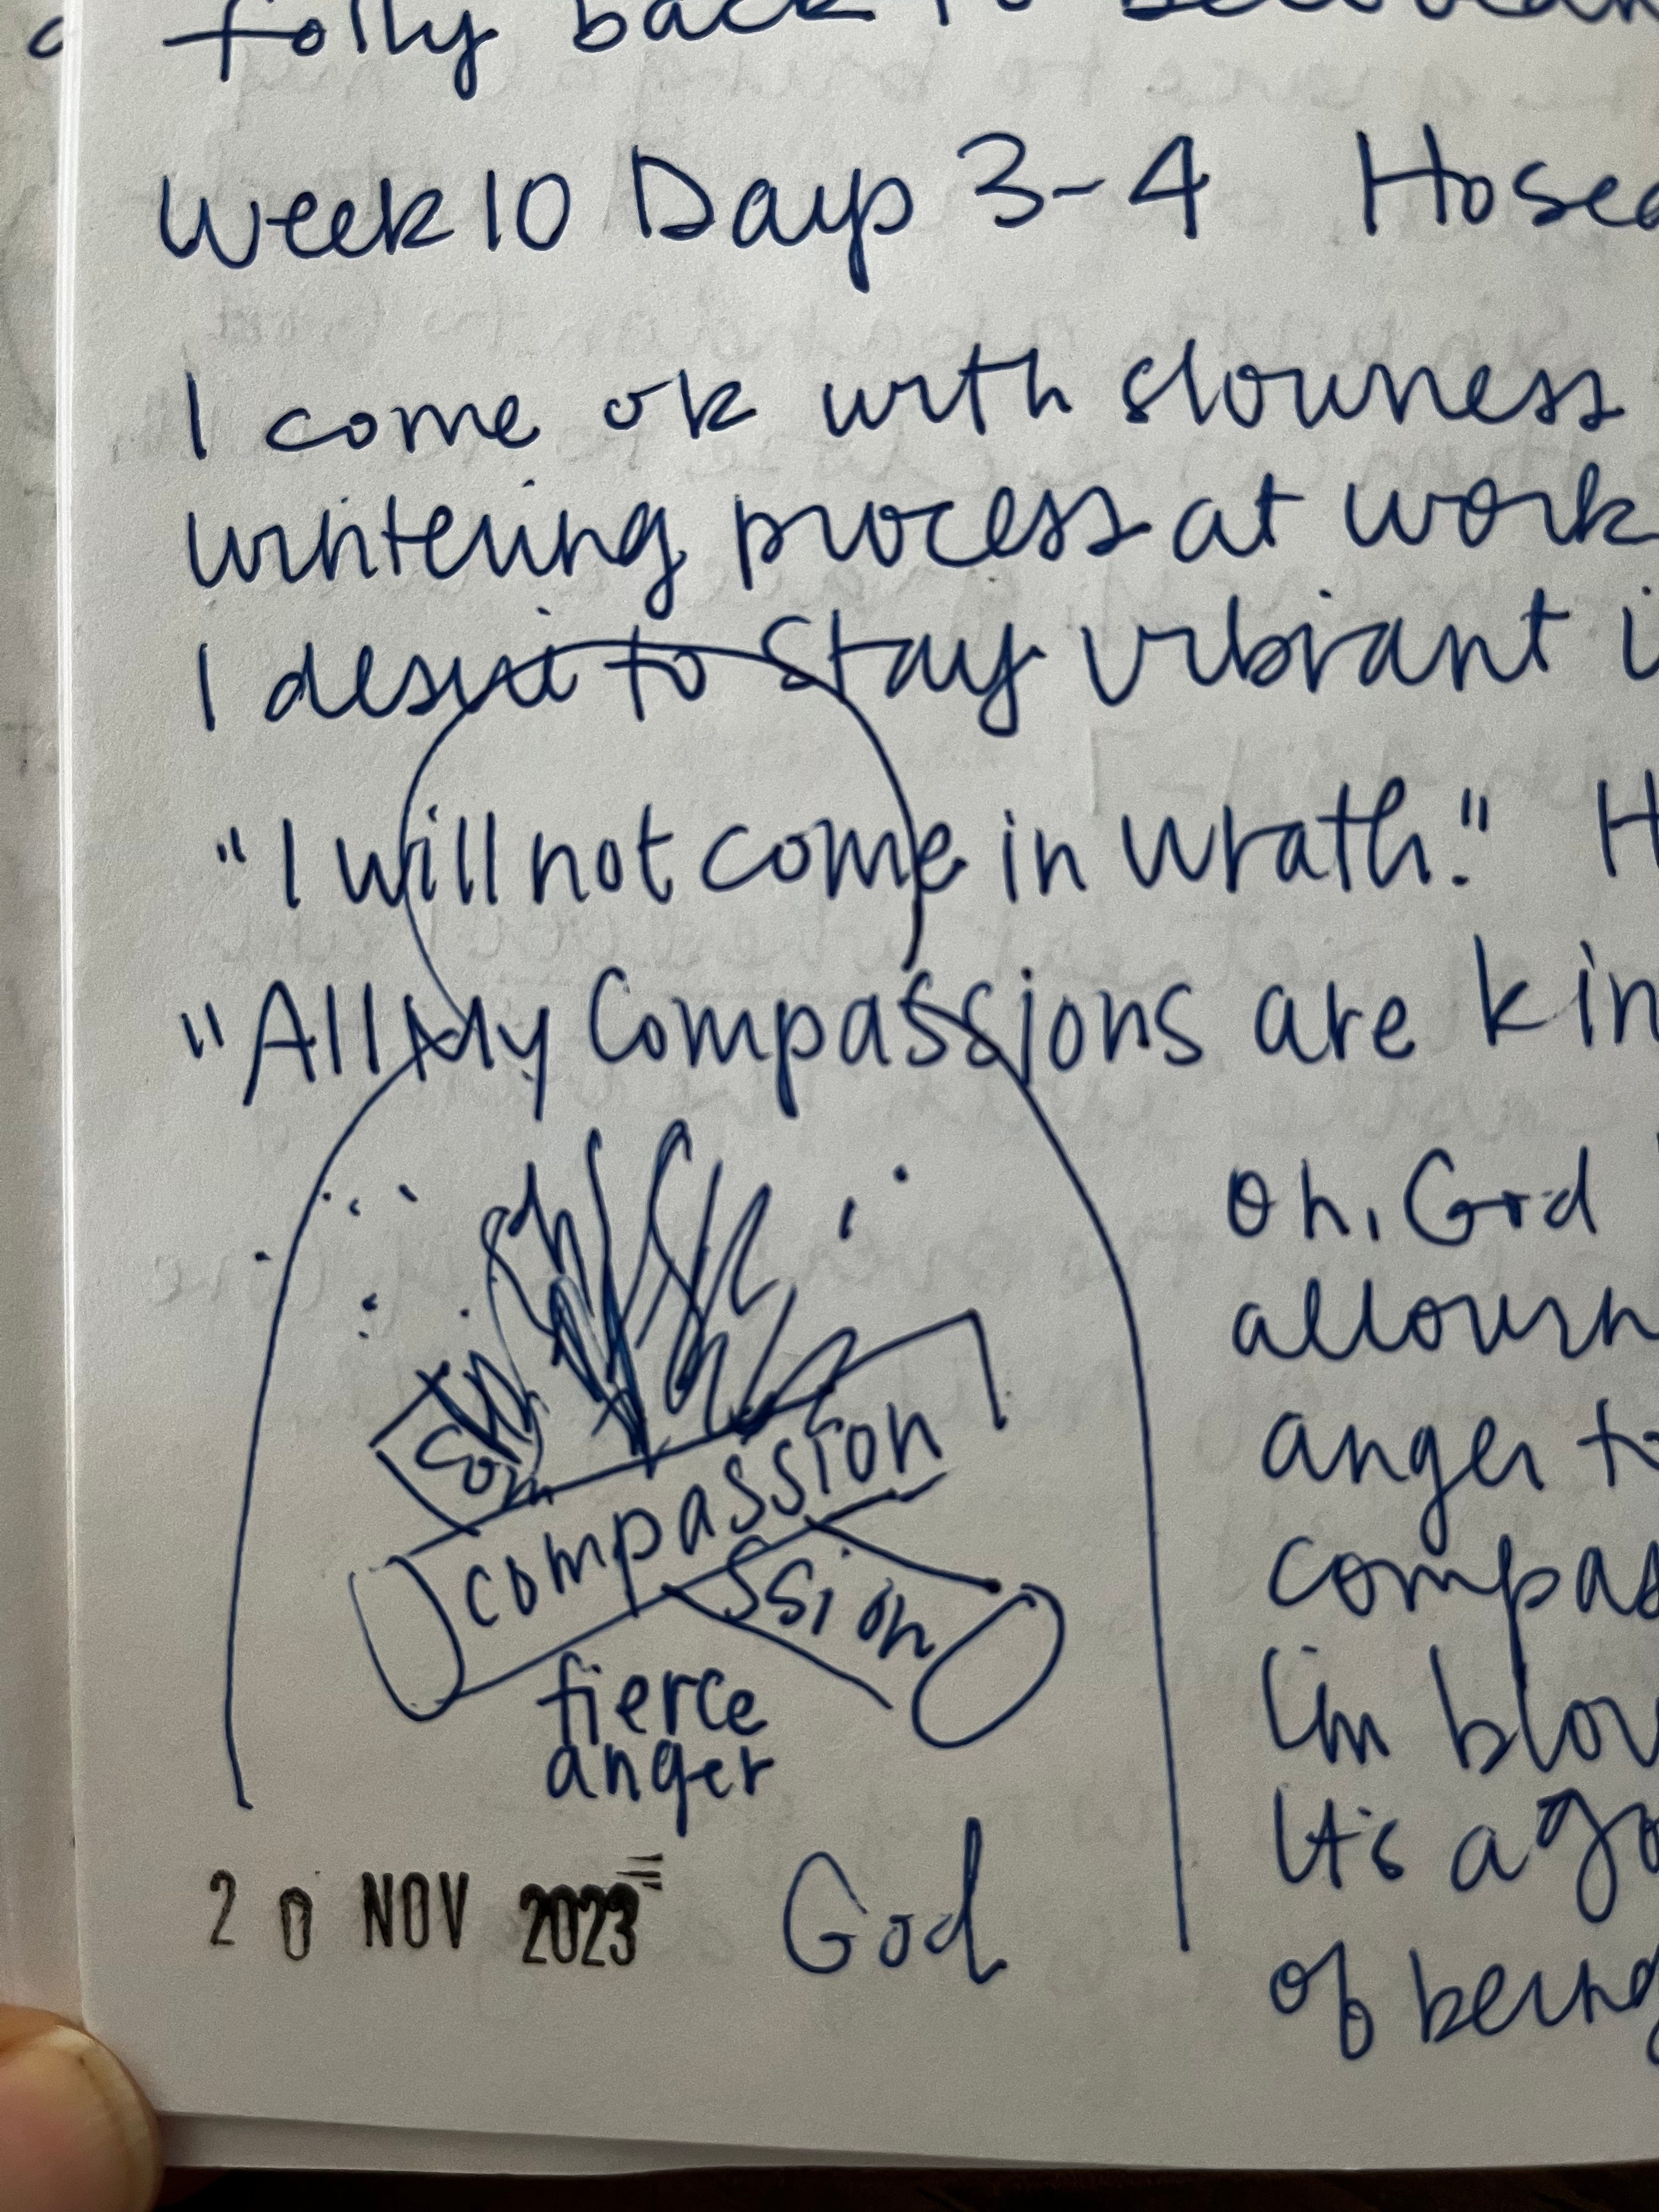 folly back to
Week 10 Days 3-4 Hosea
I come ok with slowness
wintering process at work
I desire to stay vibrant i
"I will not come in wrath." H
"All My Compassions are kin
Oh, God
allowin
anger to
compas
I'm blow
It's a go
of being
Com
compassion
ssion
fierce
anger
20 NOV 2023 God